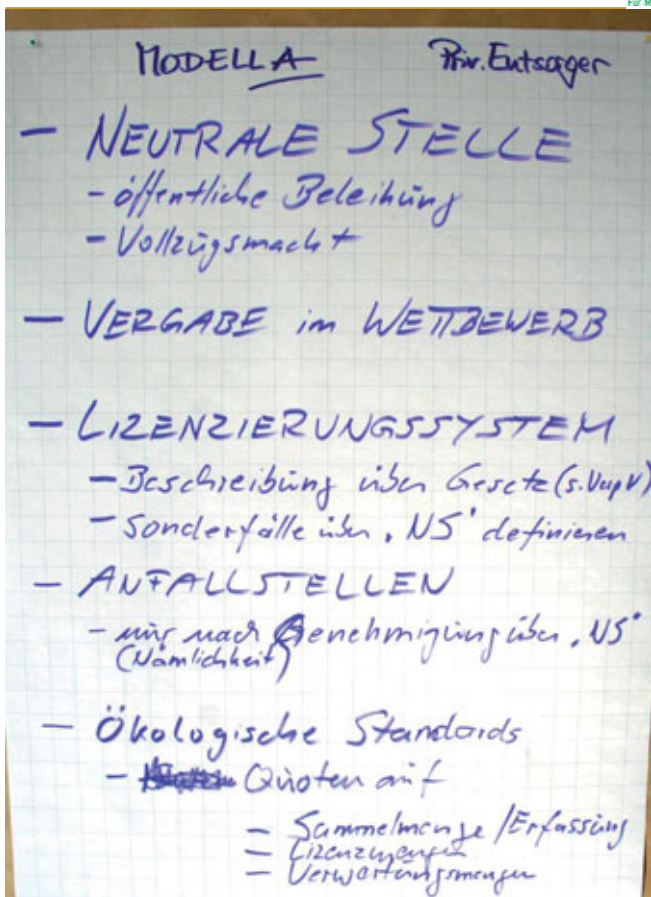 MODELL A Priv. Entsorger
- NEUTRALE STELLE
- öffentliche Beleihung
- Vollzugsmacht
- VERGABE im WETTBEWERB
- LIZENZIERUNGSSYSTEM
- Beschreibung über Gesetz (s. VerpV)
- Sonderfälle über "NS" definieren
- ANFALLSTELLEN
- nur nach Genehmigung über "NS"
(Nämlichkeit)
- Ökologische Standards
- Quoten auf
- Sammelmenge / Erfassung
- Lizenzmengen
- Verwertungsmengen